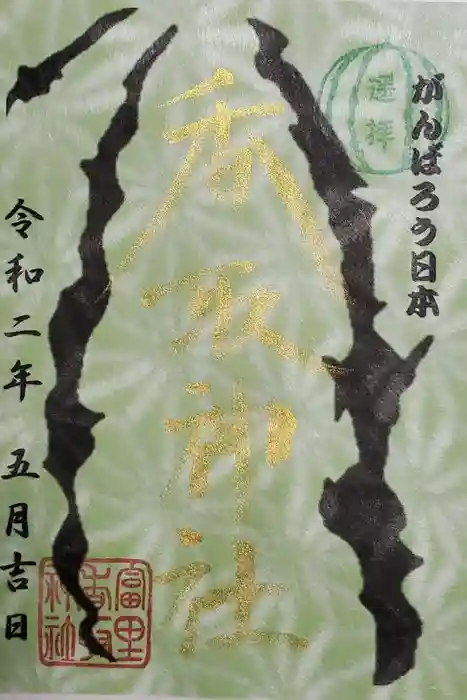 がんばろう日本
遥拝
香取神社
令和二年 五月吉日
富里
香取
神社